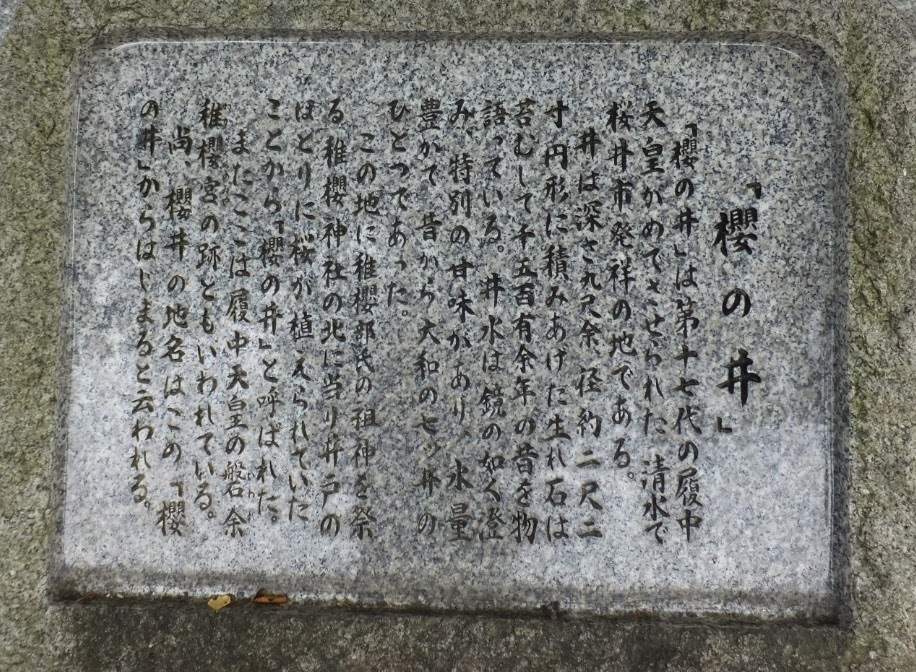 「櫻の井」
「櫻の井」は第十七代の履中
天皇がめでさせられた清水で
桜井市発祥の地である。
井は深さ九尺余、径約二尺二
寸円形に積みあげた生れ石は
苔むして千五百有余年の昔を物
語っている。井水は鏡の如く澄
み、特別の甘味があり、水量
豊かで昔から大和の七ツ井の
ひとつであった。
この地に稚櫻部氏の祖神を祭
る稚櫻神社の北に当り井戸の
ほとりに桜が植えられていた
ことから「櫻の井」と呼ばれた。
またここは履中天皇の磐余
稚櫻宮の跡ともいわれている。
尚、櫻井の地名はこの「櫻
の井」からはじまると云われる。